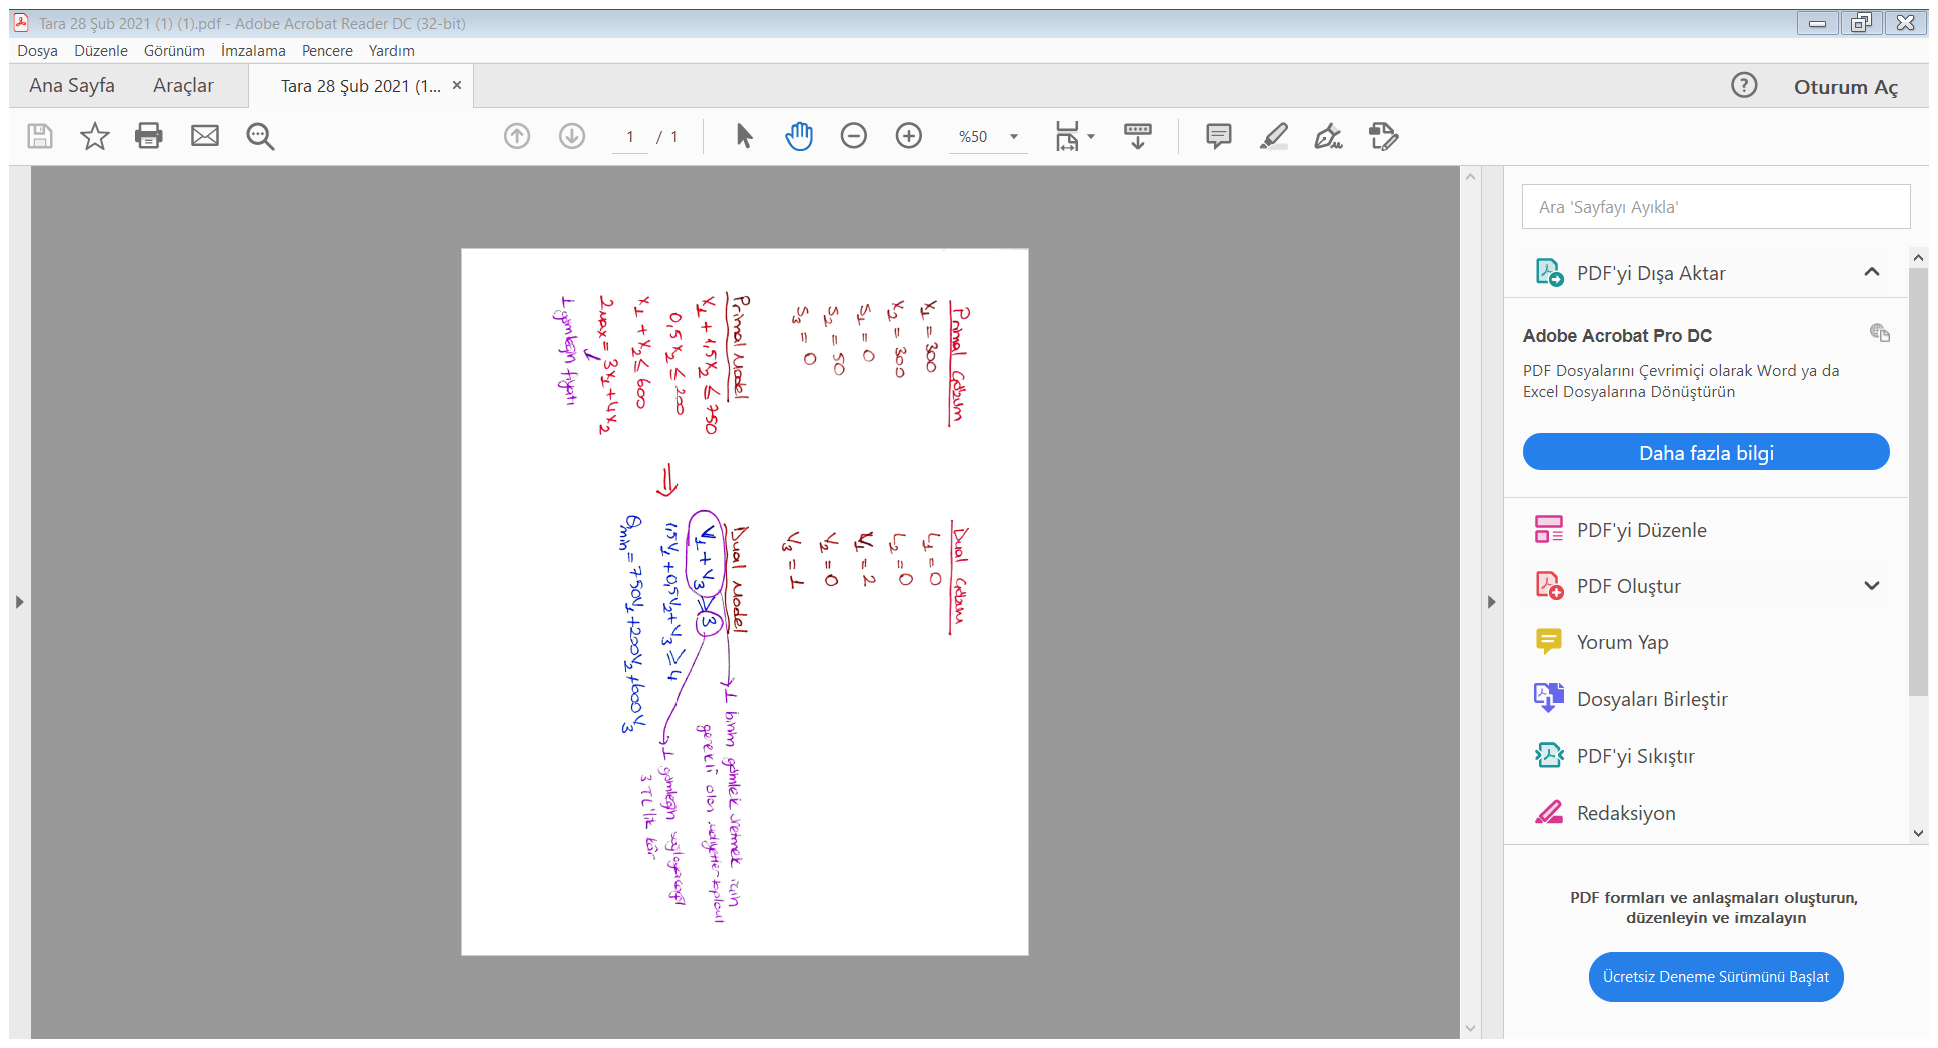 Tara 28 Şub 2021 (1) (1).pdf - Adobe Acrobat Reader DC (32-bit)
Dosya Düzenle Görünüm İmzalama Pencere Yardım
Ana Sayfa Araçlar Tara 28 Şub 2021 (1... × Oturum Aç
1 / 1 %50
Primal Çözüm
X1 = 300
X2 = 300
S1 = 0
S2 = 50
S3 = 0
Dual Çözüm
L1 = 0
L2 = 0
V1 = 2
V2 = 0
V3 = 1
Primal Model
X1 + 1,5X2 ≤ 750
0,5X2 ≤ 200
X1 + X2 ≤ 600
Zmax = 3X1 + 4X2
1 gömleğin fiyatı
⇒
Dual Model
V1 + V3 ≥ 3
1,5V1 + 0,5V2 + V3 ≥ 4
θmin = 750V1 + 200V2 + 600V3
1 birim gömlek üretmek için
gerekli olan
1 gömleğin sağlayacağı
3 TL'lik kâr
Ara 'Sayfayı Ayıkla'
PDF'yi Dışa Aktar
Adobe Acrobat Pro DC
PDF Dosyalarını Çevrimiçi olarak Word ya da
Excel Dosyalarına Dönüştürün
Daha fazla bilgi
PDF'yi Düzenle
PDF Oluştur
Yorum Yap
Dosyaları Birleştir
PDF'yi Sıkıştır
Redaksiyon
PDF formları ve anlaşmaları oluşturun,
düzenleyin ve imzalayın
Ücretsiz Deneme Sürümünü Başlat